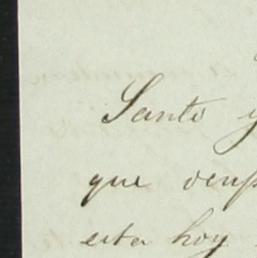 Santo y
que ocup
esta hoy